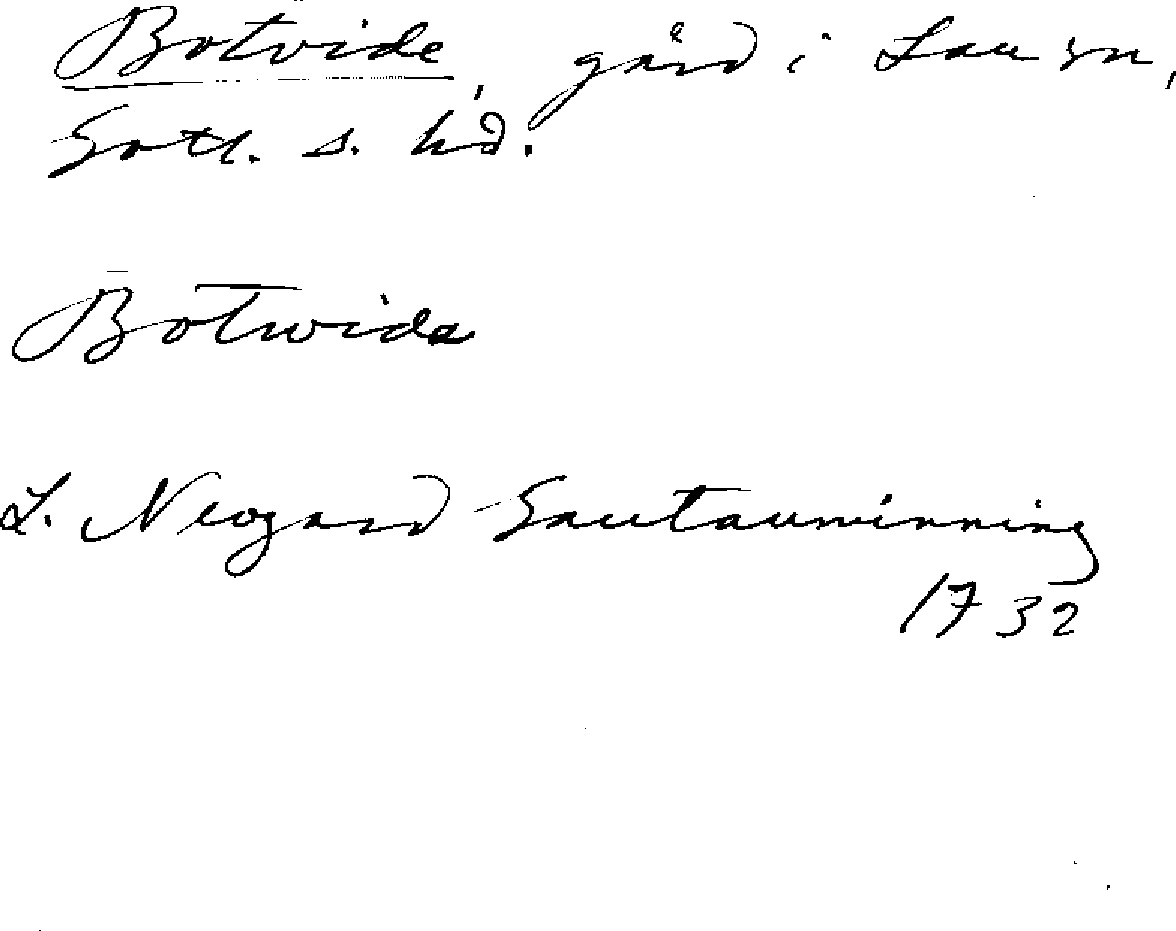 Botvide, gård i Lau sn,
Gotl. s. hd.
Botwide
L. Neogard Gautauminning
1732